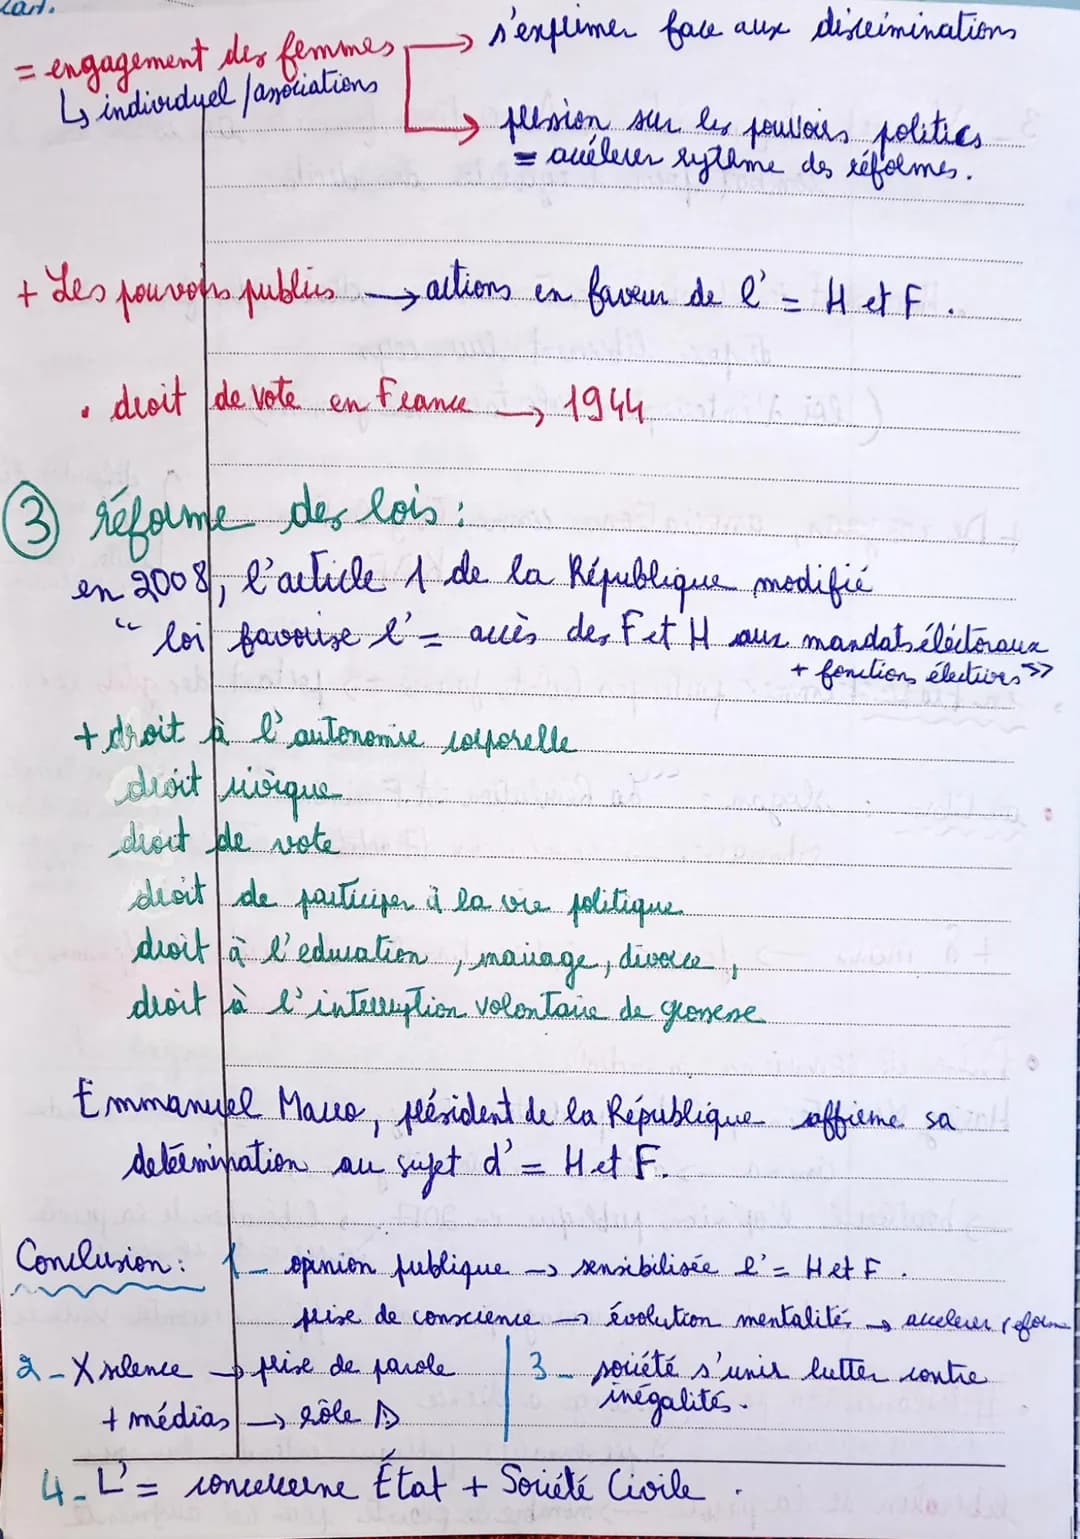 = engagement des femmes → s'exprimer face aux discriminations
↳ individuel / associations
→ pression sur les pouvoirs politics
= accélerer rythme des réformes.
+ Les pouvoirs publics → actions en faveur de l'= H et F.
• droit de vote en France → 1944
③ réforme des lois :
en 2008, l'article 1 de la République modifié
" loi favorise l'= accès des F et H aux mandats éléctoraux
+ fonctions électives >>
+ droit à l'autonomie corporelle
droit civique
droit de vote
droit de participer à la vie politique
droit à l'education, mariage, divorce,
droit à l'interruption volontaire de grossesse
Emmanuel Macro, président de la République affirme sa
detérmination au sujet d'= H et F.
Conclusion : 1_ opinion publique → sensibilisée l'= H et F.
prise de conscience → évolution mentalités → accelerer reforme
2_ X silence → prise de parole
+ médias → rôle
3_ société s'unir lutter contre
inégalités.
4_ L'= concercerne État + Société Civile.